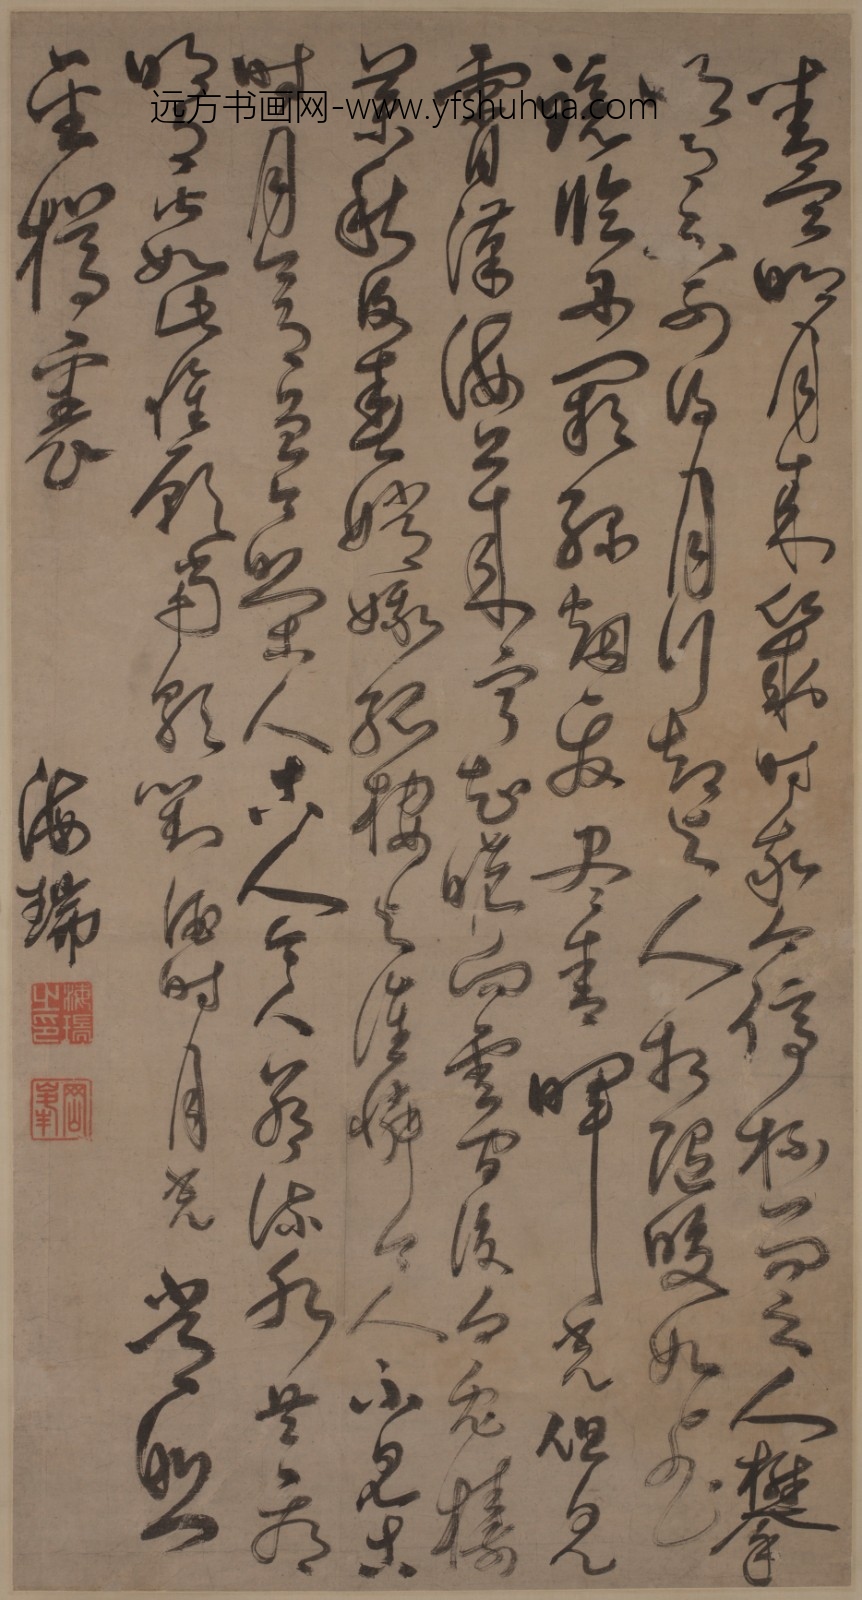 远方书画网-www.yfshuhua.com
青空明月来幾时我今停杯一问之人攀
明月不可得月行却与人相随皎如飛
镜临丹阙绿烟灭尽清暉发但见
霄海上来宁知晓向雲间没白兔捣
药秋复春嫦娥孤栖与谁憐今人不见古
时月今月曾照人古人今人若流水共看
明月皆如此惟願当歌对酒时月光常照
金樽裏
海瑞
海瑞之印